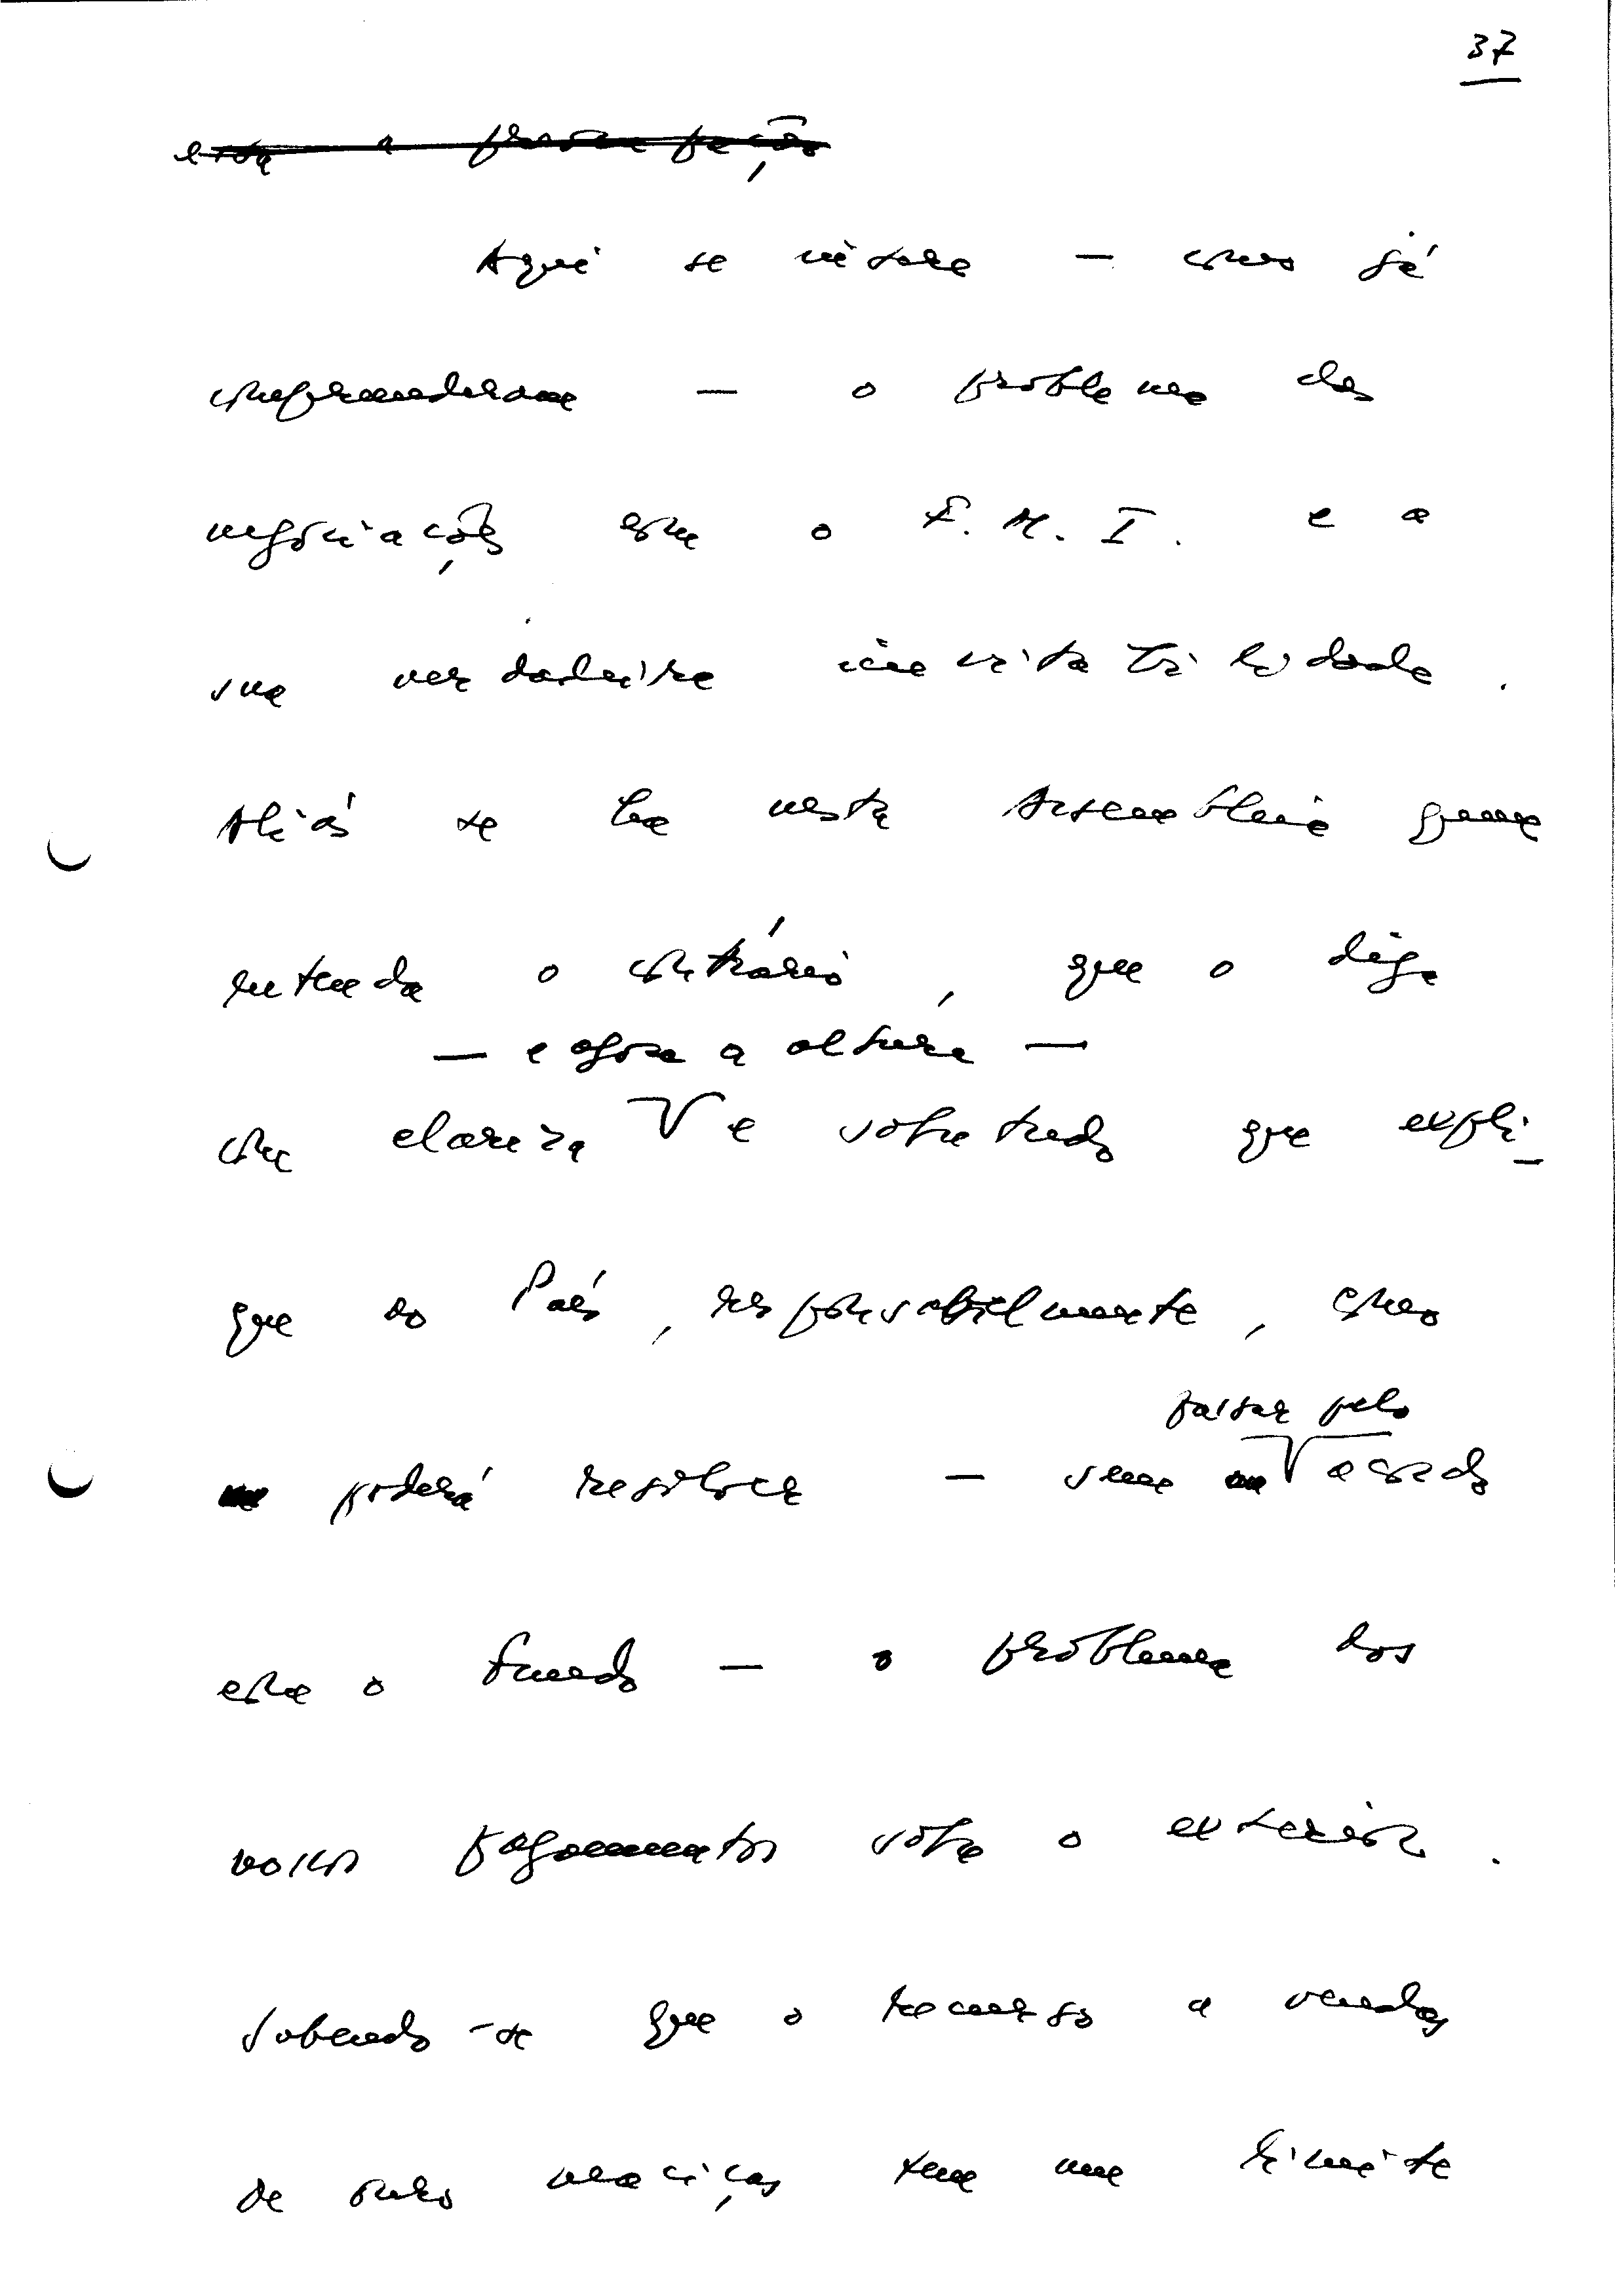 37
esta a preocupação
Aqui se insere — como já
compreenderam — o problema das
negociações com o F. M. I. e a
sua verdadeira inevitabilidade.
Aliás se há nesta Assembleia quem
entenda o contrário, que o diga
— e agora a altura —
com clareza e sobretudo que expli-
que ao País, responsavelmente, como
poderá resolver — sem passar pelo acordo
com o Fundo — o problema dos
nossos pagamentos sobre o exterior.
Sabendo-se que o recurso a vendas
de ouro maciças tem um limite